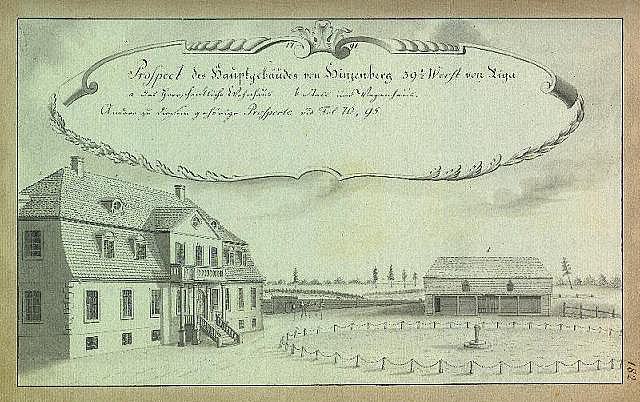 17 91
Prospect des Hauptgebäudes von Hinzenberg 39½ Werst von Riga
a das Herrschaftliche Wohnhaus b Stall und Wagenhaus.
Andere zu diesem gehörige Prospecte vid Fol 70, 95.
182